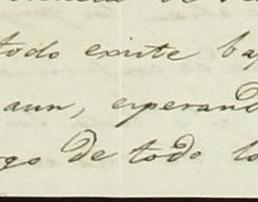 todo existe ba
aun, esperand
go de todo lo